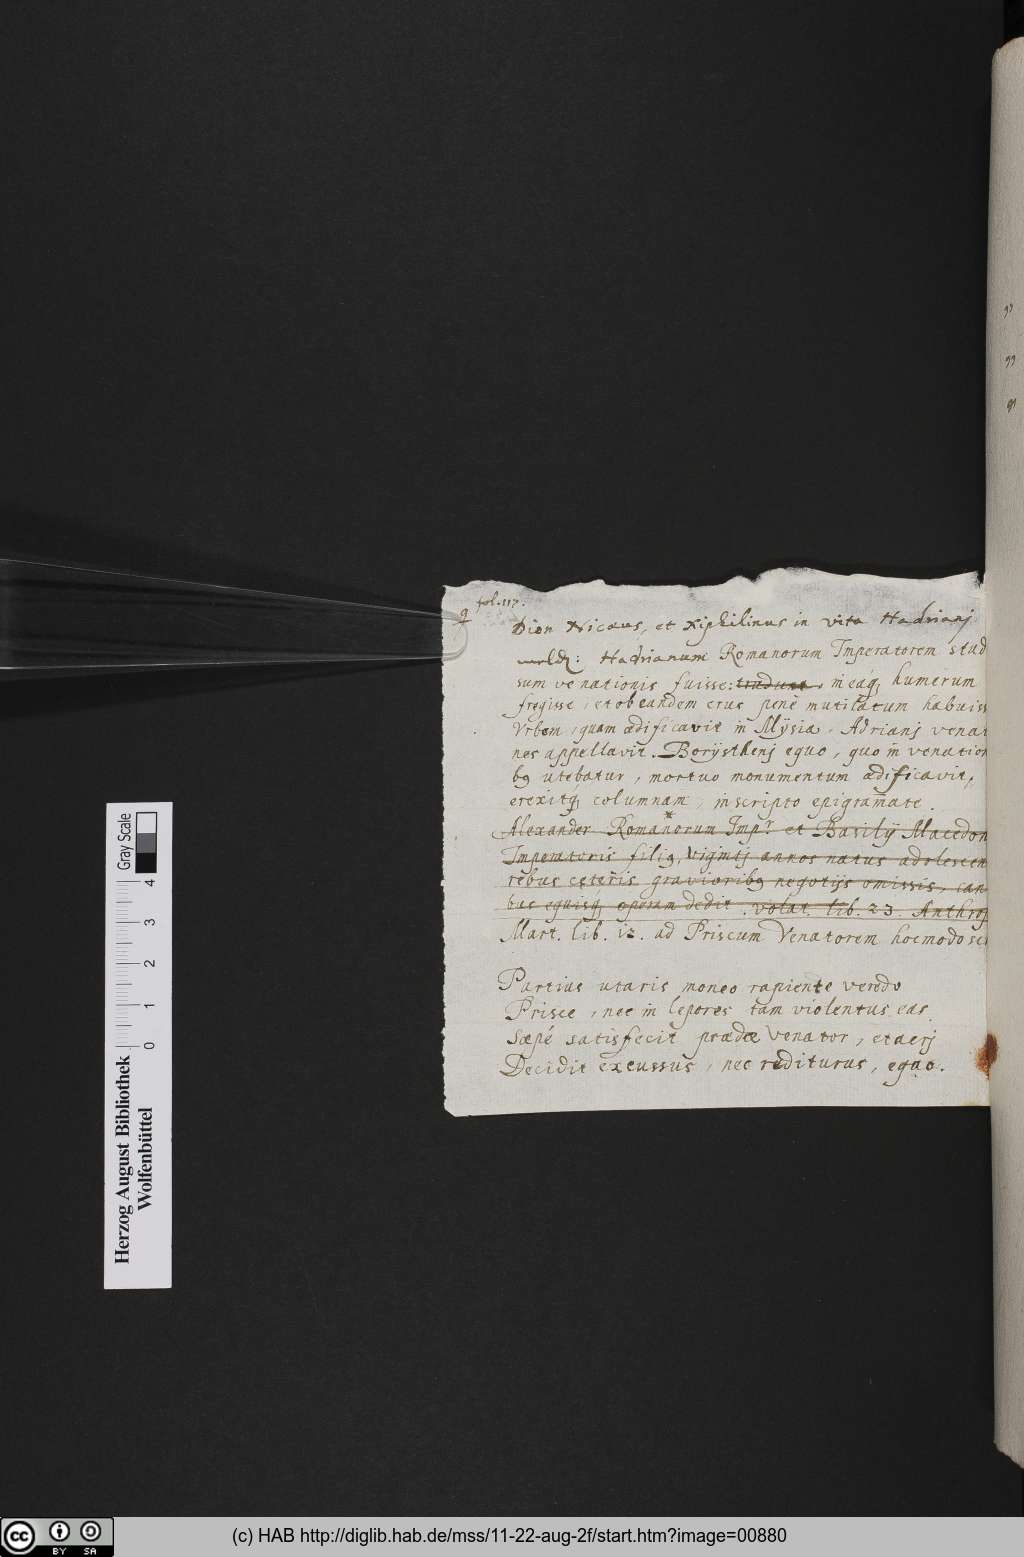 fol. 117.
Dion Nicæus, et Xiphilinus in vita Hadrianj
Hadrianum Romanorum Imperatorem stud
sum venationis fuisse: tradunt, in eaq; humerum
fregisse, et ob eandem crus penè mutilatum habuiss
Vrbem, quam ædificavit in Mÿsia, Adrianj venat
nes appellavit. Borÿsthenj equo, quo in venation
b9 utebatur, mortuo monumentum ædificavit,
erexitq; columnam, inscripto epigram̄ate.
Alexander Romanorum Imp.r et Basilÿ Macedon
Imperatoris fili9, vigintj annos natus adolescen
rebus ceteris graviorib9 negotijs omissis, can
bus equisq; operam dedit. Volat. lib. 23. Anthrop
Mart. lib. 12. ad Priscum Venatorem hocmodo sc
Partius utaris moneo rapiente veredo
Prisce, nec in lepores tam violentus eas.
Sæpé satisfecit prædæ venator, et acrj
Decidit excussus, nec rediturus, equo.
Herzog August Bibliothek
Wolfenbüttel
0 1 2 3 4
Gray Scale
cc BY SA
(c) HAB http://diglib.hab.de/mss/11-22-aug-2f/start.htm?image=00880